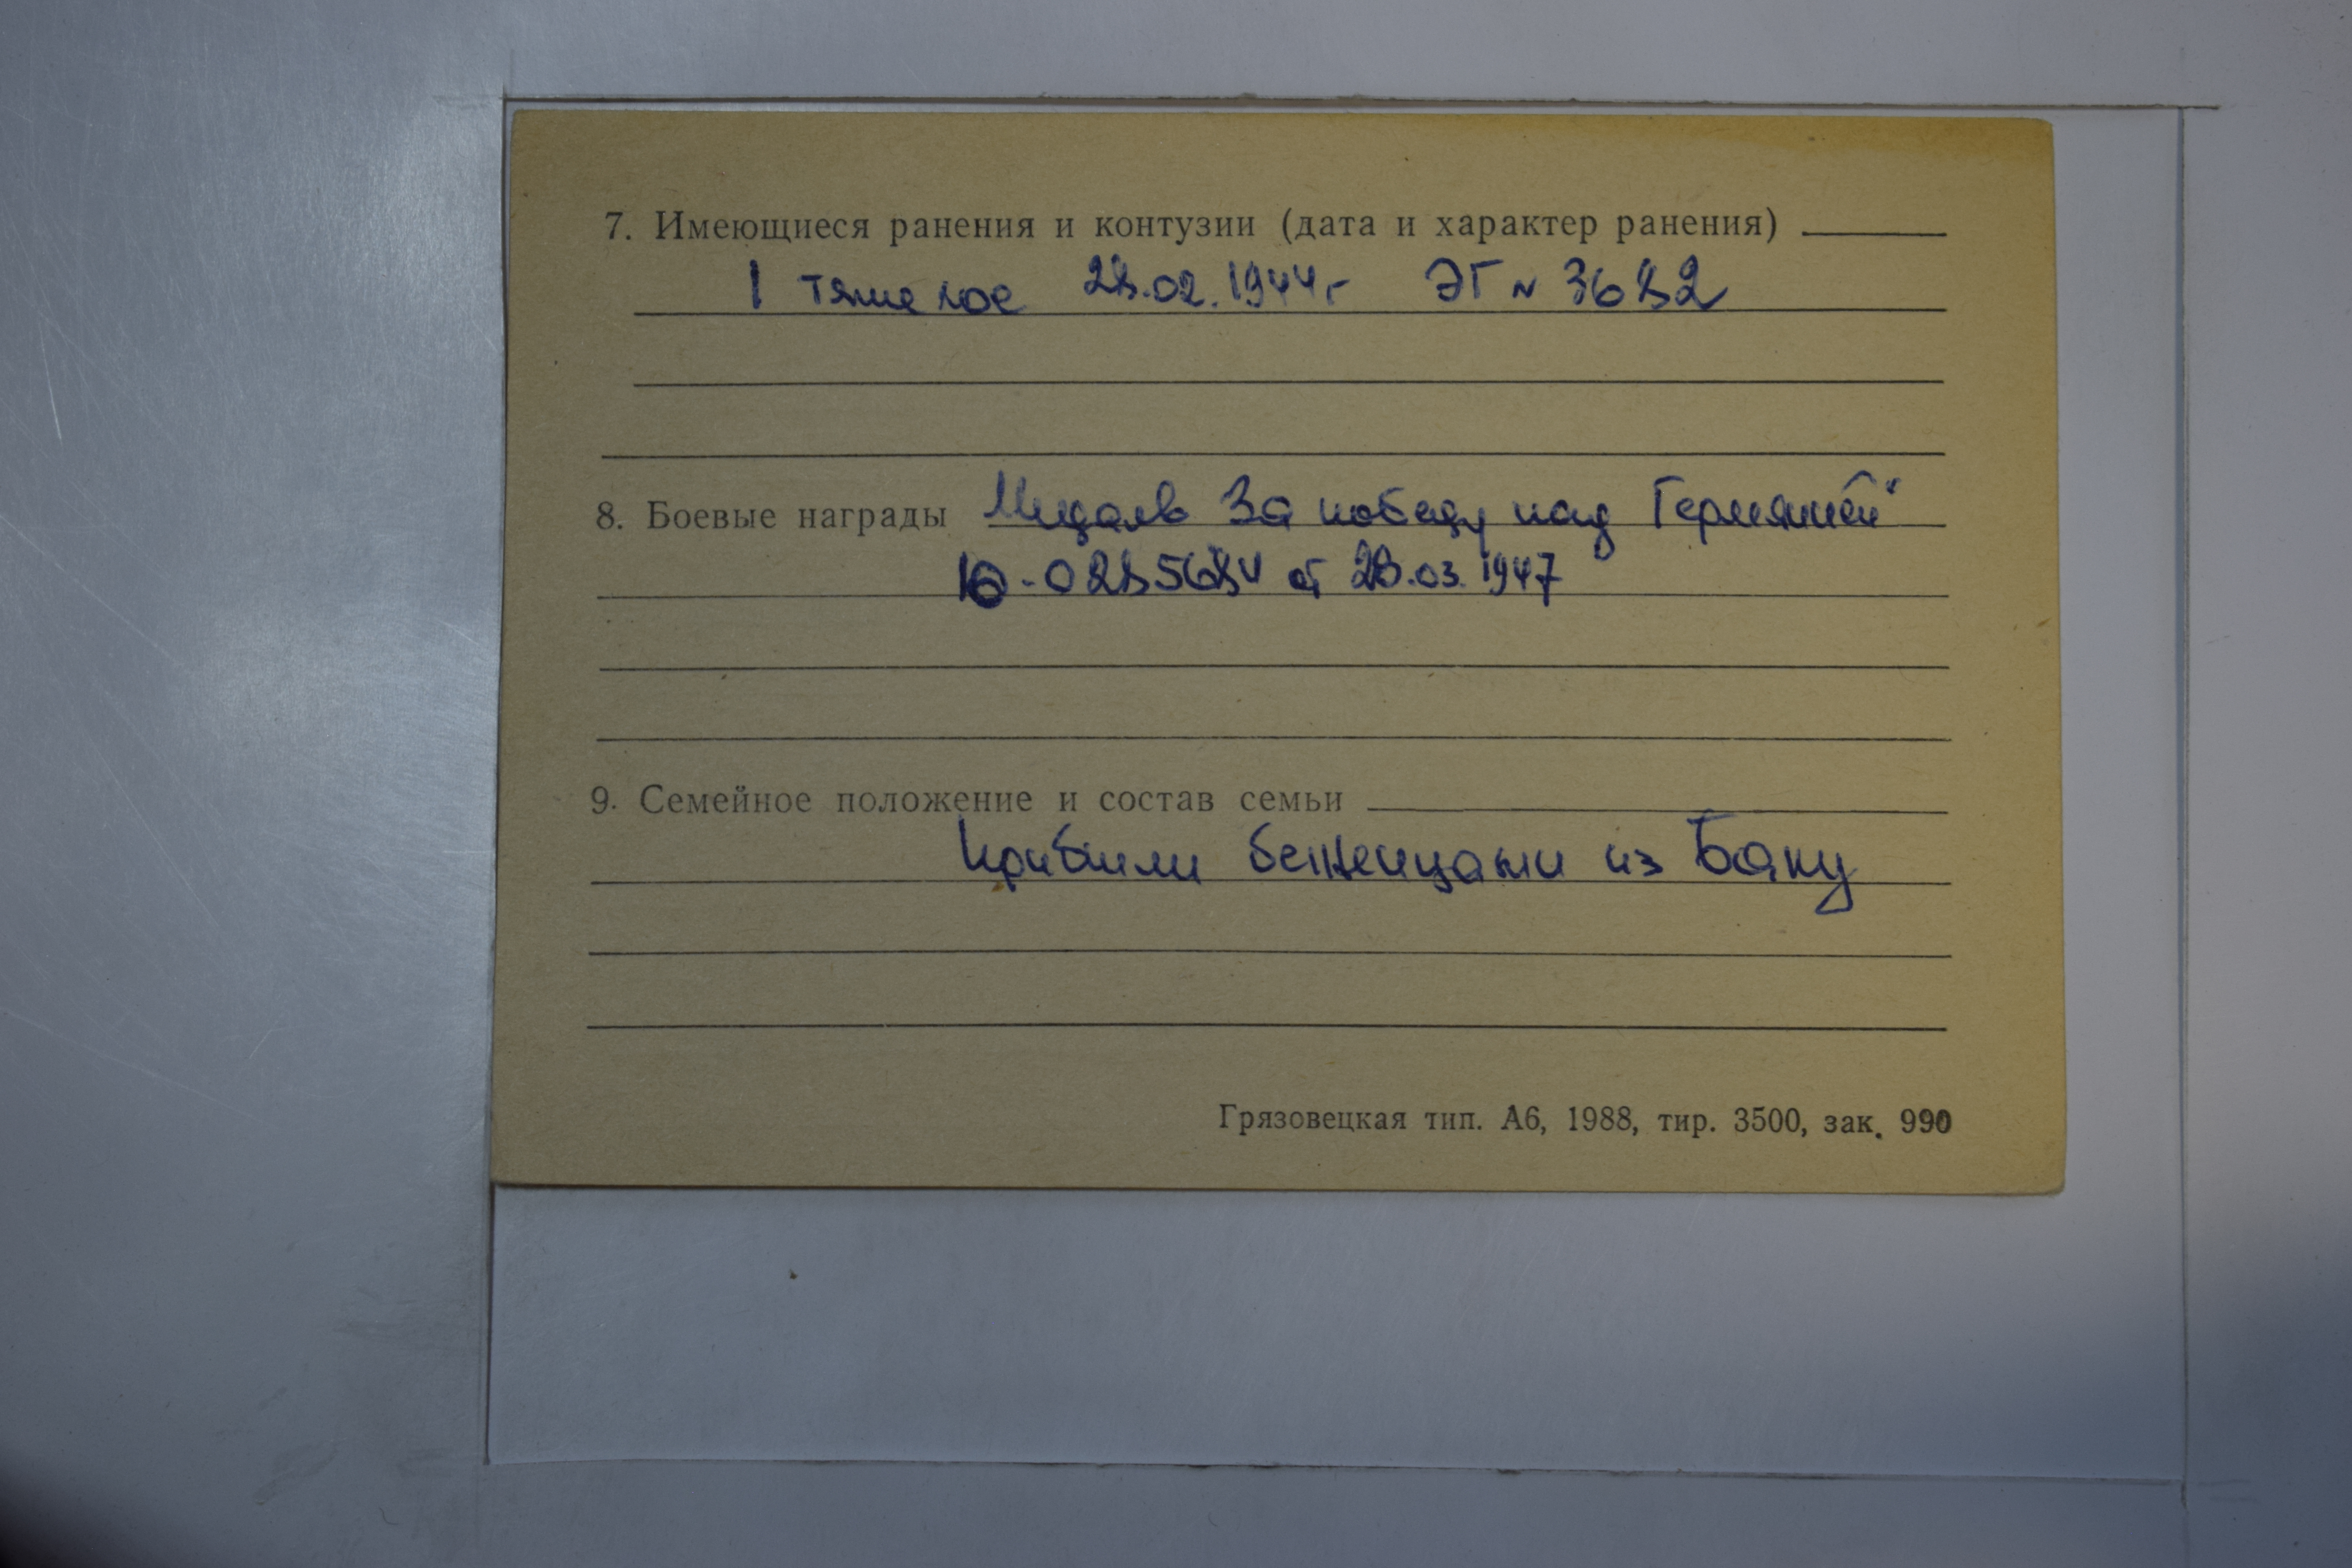 7. Имеющиеся ранения и контузии (дата и характер ранения)
1 тяжелое 28.02.1944г ЭГ № 3682
8. Боевые награды Медаль За победу над Германией"
от 28.03.1947
9. Семейное положение и состав семьи
Прибыли беженцами из Баку
Грязовецкая тип. А6, 1988, тир. 3500, зак. 990